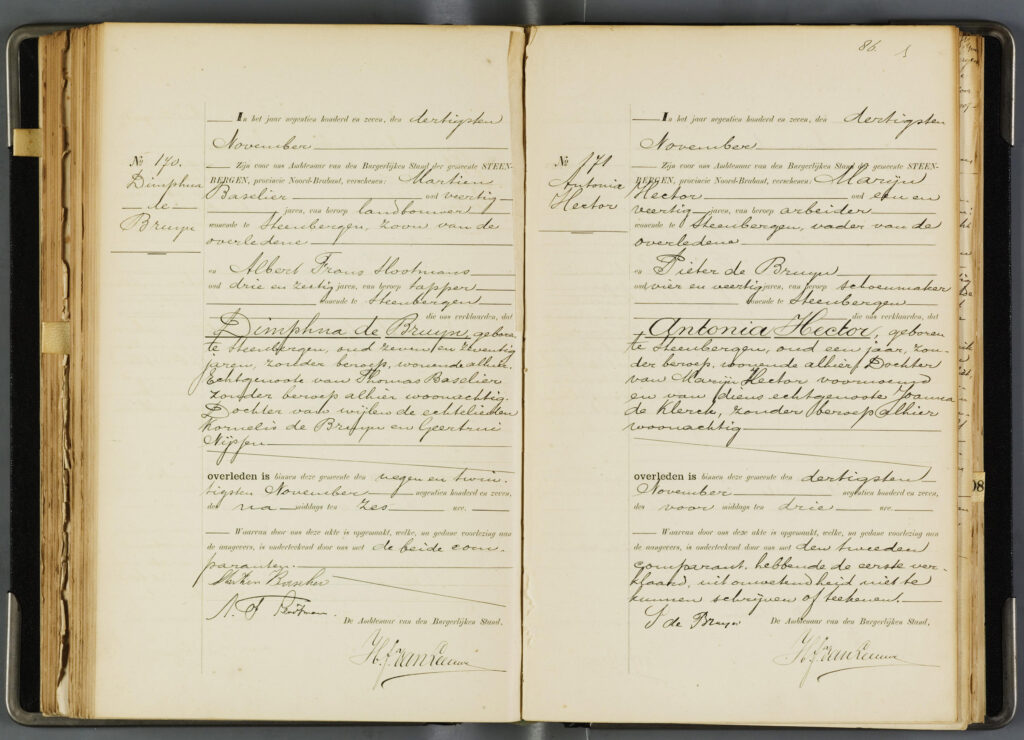 86. 1
In het jaar negentien honderd en zeven, den dertigsten
November
No 170.
Dimphna
de
Bruyn
Zijn voor ons Ambtenaar van den Burgerlijken Stand der gemeente STEEN-
BERGEN, provincie Noord-Brabant, verschenen: Martien
Baselier oud veertig
jaren, van beroep landbouwer
wonende te Steenbergen, zoon van de
overledene
en Albert Frans Hootmans
oud drie en zestig jaren, van beroep tapper
wonende te Steenbergen
die ons verklaarden, dat
Dimphna de Bruyn, geboren
te Steenbergen, oud zeven en zeventig
jaren, zonder beroep, wonende alhier.
Echtgenoote van Thomas Baselier
zonder beroep alhier woonachtig.
Dochter van wijlen de echtelieden
Kornelis de Bruyn en Geertrui
Nijssen
overleden is binnen deze gemeente den negen en twin-
tigsten November negentien honderd en zeven,
des na middags ten zes ure.
Waarvan door ons deze akte is opgemaakt, welke, na gedane voorlezing aan
de aangevers, is onderteekend door ons met de beide com-
paranten.
De Ambtenaar van den Burgerlijken Stand,
H. J. van Leeuw
In het jaar negentien honderd en zeven, den dertigsten
November
No 171
Antonia
Hector
Zijn voor ons Ambtenaar van den Burgerlijken Stand der gemeente STEEN-
BERGEN, provincie Noord-Brabant, verschenen: Marijn
Hector oud een en
veertig jaren, van beroep arbeider
wonende te Steenbergen, vader van de
overledene
en Pieter de Bruyn
oud vier en veertig jaren, van beroep schoenmaker
wonende te Steenbergen
die ons verklaarden, dat
Antonia Hector, geboren
te Steenbergen, oud een jaar, zon-
der beroep, wonende alhier, Dochter
van Marijn Hector voornoemd
en van diens echtgenoote Joanna
de Klerck, zonder beroep alhier
woonachtig
overleden is binnen deze gemeente den dertigsten
November negentien honderd en zeven,
des voor middags ten drie ure.
Waarvan door ons deze akte is opgemaakt, welke, na gedane voorlezing aan
de aangevers, is onderteekend door ons met den tweeden
comparant, hebbende de eerste ver-
klaard, uit onwetendheid niet te
kunnen schrijven of teekenen.
de Bruyn
De Ambtenaar van den Burgerlijken Stand,
H. J. van Leeuw